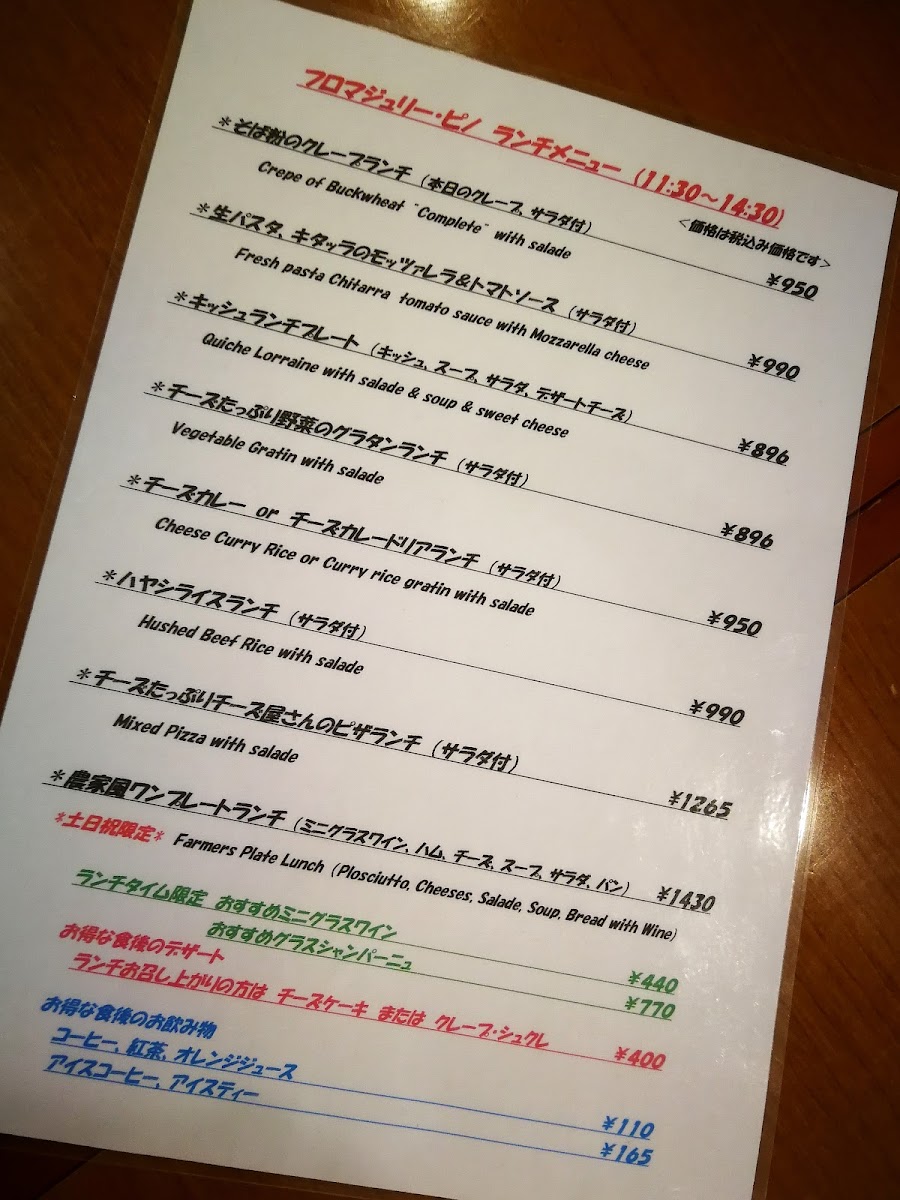 フロマジュリー・ピノ ランチメニュー (11:30～14:30)
<価格は税込み価格です>
＊そば粉のクレープランチ (本日のクレープ、サラダ付) ¥950
Crepe of Buckwheat "Complete" with salade
＊生パスタ、キタッラのモッツァレラ＆トマトソース (サラダ付) ¥990
Fresh pasta Chitarra tomato sauce with Mozzarella cheese
＊キッシュランチプレート (キッシュ、スープ、サラダ、デザートチーズ) ¥896
Quiche Lorraine with salade & soup & sweet cheese
＊チーズたっぷり野菜のグラタンランチ (サラダ付) ¥896
Vegetable Gratin with salade
＊チーズカレー or チーズカレードリアランチ (サラダ付) ¥950
Cheese Curry Rice or Curry rice gratin with salade
＊ハヤシライスランチ (サラダ付) ¥990
Hushed Beef Rice with salade
＊チーズたっぷりチーズ屋さんのピザランチ (サラダ付) ¥1265
Mixed Pizza with salade
＊農家風ワンプレートランチ (ミニグラスワイン、ハム、チーズ、スープ、サラダ、パン) ¥1430
*土日祝限定* Farmers Plate Lunch (Plosciutto, Cheeses, Salade, Soup, Bread with Wine)
ランチタイム限定 おすすめミニグラスワイン ¥440
おすすめグラスシャンパーニュ ¥770
お得な食後のデザート
ランチお召し上がりの方は チーズケーキ または クレープ・シュクレ ¥400
お得な食後のお飲み物
コーヒー、紅茶、オレンジジュース ¥110
アイスコーヒー、アイスティー ¥165